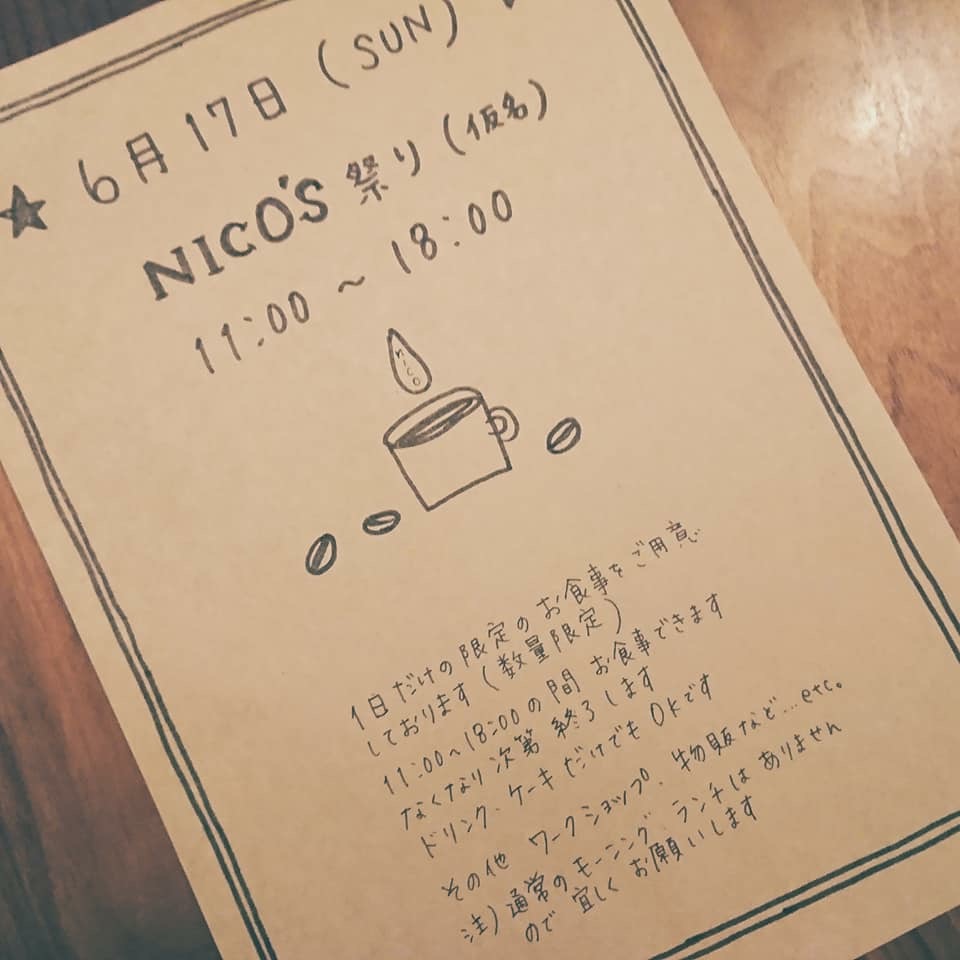 ★ 6月17日(SUN)
NICO'S 祭り(仮名)
11:00 ~ 18:00
NICO
1日だけの限定のお食事をご用意
しております(数量限定)
11:00~18:00の間 お食事できます
なくなり次第 終了します
ドリンク、ケーキだけでも OKです
その他 ワークショップ、物販など...etc。
注)通常のモーニング、ランチは ありません
ので 宜しく お願いします